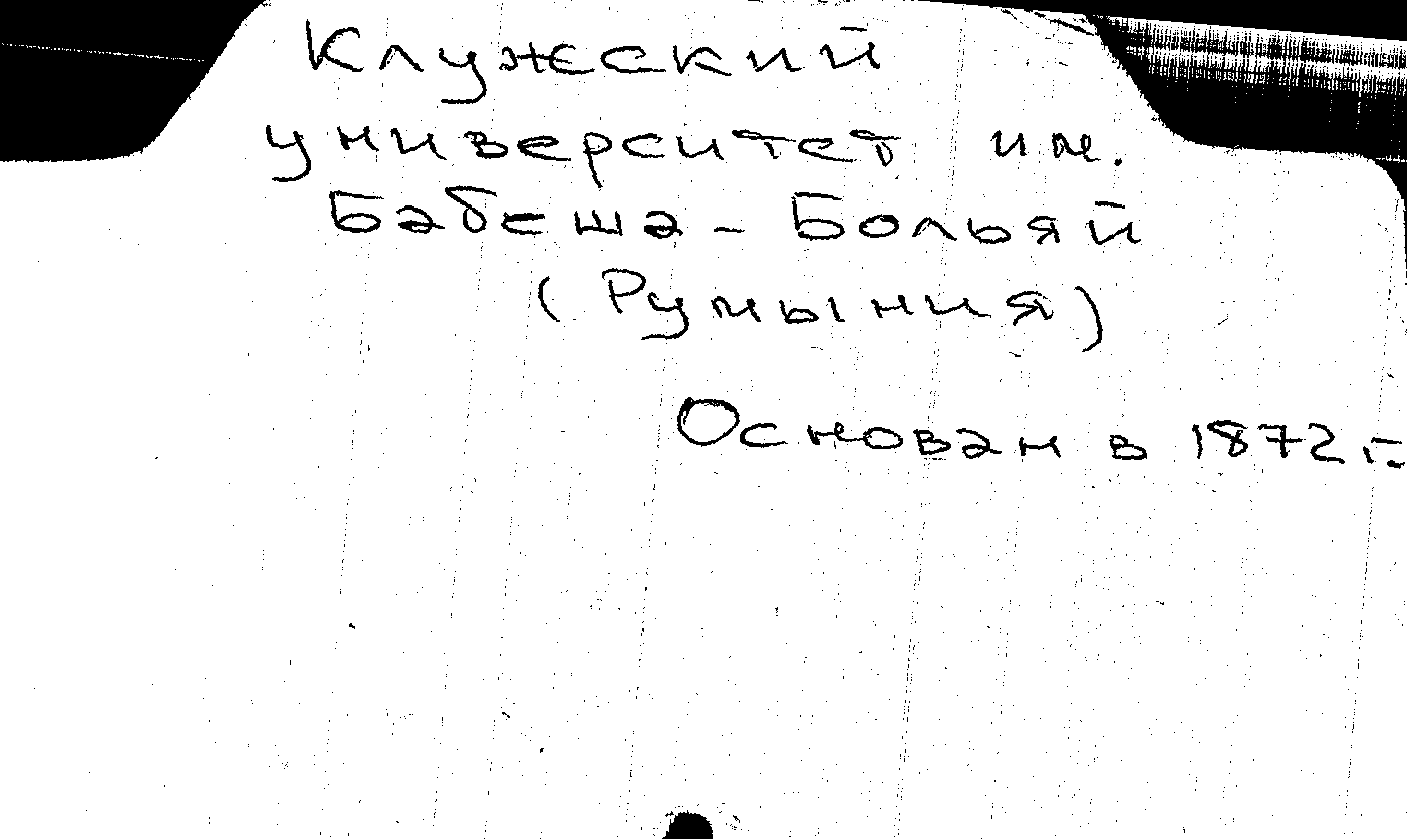 Клужский
университет им.
Бабеша - Больяй
(Румыния)
Основан в 1872 г.